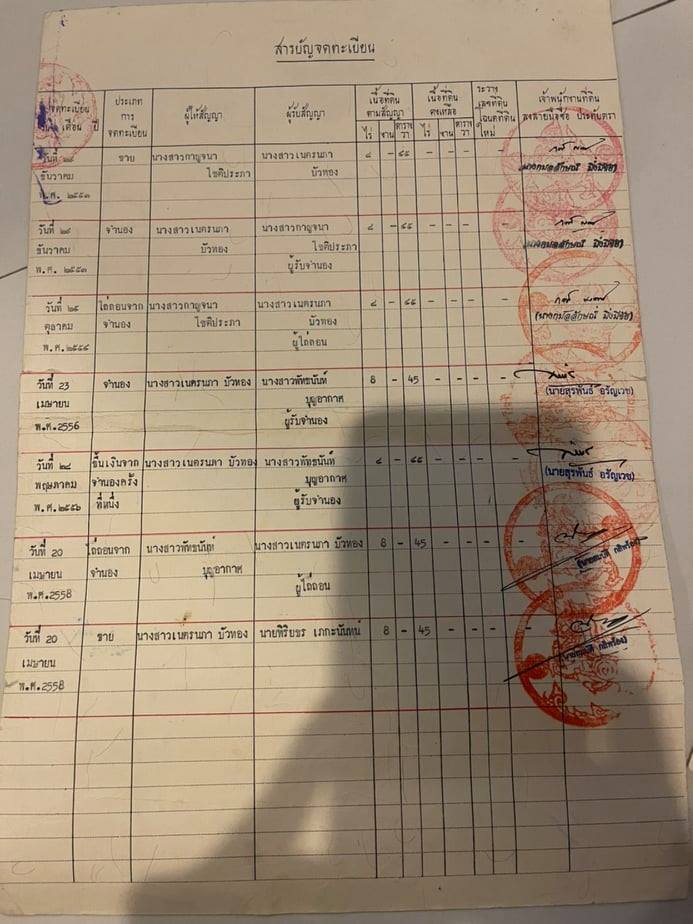 สารบัญจดทะเบียน
จดทะเบียน
วันที่ เดือน ปี
ประเภท
การ
จดทะเบียน
ผู้ให้สัญญา
ผู้รับสัญญา
เนื้อที่ดิน
ตามสัญญา
ไร่ งาน ตาราง
วา
เนื้อที่ดิน
คงเหลือ
ไร่ งาน ตาราง
วา
ระวาง
เลขที่ดิน
โฉนดที่ดิน
ใหม่
เจ้าพนักงานที่ดิน
ลงลายมือชื่อ ประทับตรา
วันที่ ๒๘ ขาย นางสาวกาญจนา นางสาวเนตรนภา ๘ - ๔๕ - - - -
ธันวาคม โชติประภา บัวทอง
พ.ศ. ๒๕๕๓
วันที่ ๒๘ จำนอง นางสาวเนตรนภา นางสาวกาญจนา ๘ - ๔๕ - - - -
ธันวาคม บัวทอง โชติประภา
พ.ศ. ๒๕๕๓ ผู้รับจำนอง
วันที่ ๒๕ ไถ่ถอนจาก นางสาวกาญจนา นางสาวเนตรนภา ๘ - ๔๕ - - - -
ตุลาคม จำนอง โชติประภา บัวทอง
พ.ศ. ๒๕๕๔ ผู้ไถ่ถอน
วันที่ 23 จำนอง นางสาวเนตรนภา บัวทอง นางสาวพัทธนันท์ 8 - 45 - - - -
เมษายน บุญอากาศ (นายสุรพันธ์ อรัญเวช)
พ.ศ.2556 ผู้รับจำนอง
วันที่ ๒๘ ขึ้นเงินจาก นางสาวเนตรนภา บัวทอง นางสาวพัทธนันท์ ๘ - ๔๕ - - - -
พฤษภาคม จำนองครั้ง บุญอากาศ (นายสุรพันธ์ อรัญเวช)
พ.ศ. ๒๕๕๖ ที่หนึ่ง ผู้รับจำนอง
วันที่ 20 ไถ่ถอนจาก นางสาวพัทธนันท์ นางสาวเนตรนภา บัวทอง 8 - 45 - - - -
เมษายน จำนอง บุญอากาศ
พ.ศ.2558 ผู้ไถ่ถอน
วันที่ 20 ขาย นางสาวเนตรนภา บัวทอง นายพิริยธร เภกะนันทน์ 8 - 45 - - - -
เมษายน
พ.ศ.2558